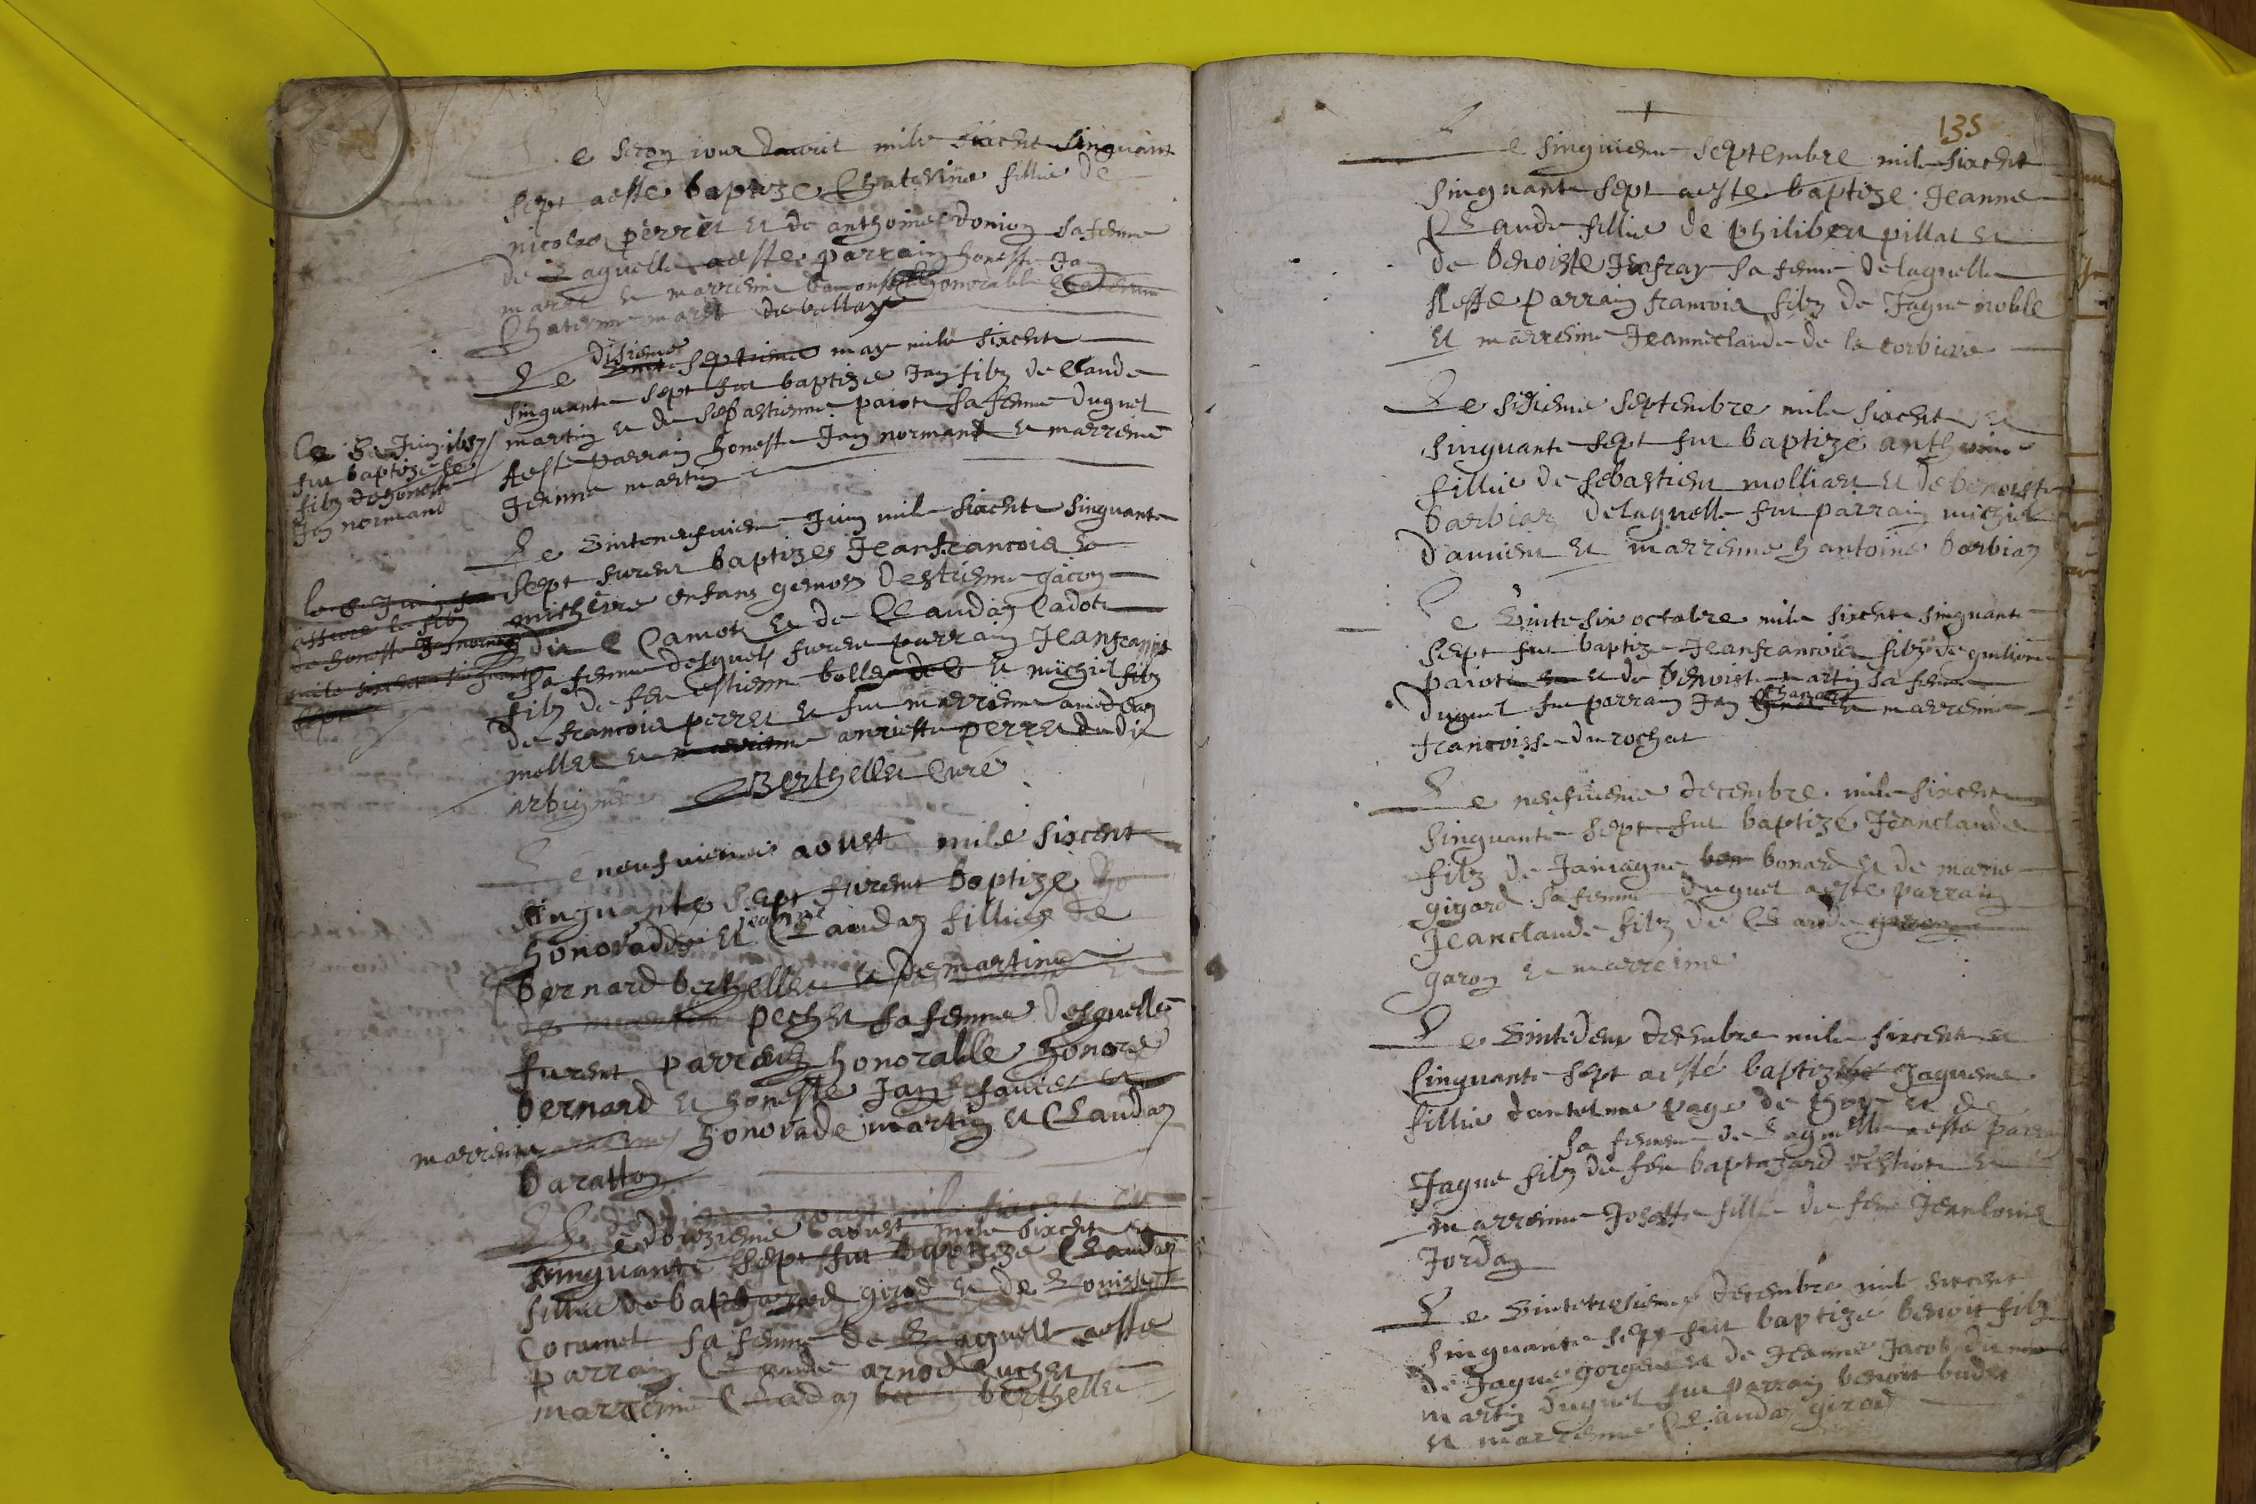 Le secon jour davril mile sixcent singuante
sept aeste baptize Chaterine fillie de
nicolas perret et de anthoine donion sa femme
de laquelle aeste parrain honeste Jan
maret et marreine honorable
Chaterine maret de bellay
Le disieme may mile sixcent
singuante sept fut baptize Jan filz de Claude
martin et de sebastienne paiot sa femme duquel
Aeste parrain honeste Jan normand et marreine
Jeanne martin
Ce Juin 1657
fut baptize le
filz de honeste
Jan normand
Le vinteneufvieme Juin mile sixcent singuante
sept furent baptizes Jeanfrancois et
micheire enfans gemos destienne gacon
dit Camot et de Claudaz Cadot
sa femme desquels furent parrain Jeanfrancois
filz de feu estienne bolle et michiel filz
de francois perret et fut marreine amedeaz
mollet et anriette perret dudit
arbignieu
Berthellet Curé
le 8 Juin
de honeste Jan normand
mile sixcent singuante
sept
Le neufvieme aoust mile sixcent
singuante sept furent baptize
honoradde et jeanne Claudaz fillies de
bernard berthellet et de martine
pechet sa femme desquelles
furent parrains honorable honoré
bernard et honeste Jan favier et
marreine honorade martin et Claudaz
baratton
Le douzieme aoust mile sixcent et
singuante sept fut baptize Claudaz
fillie de baptazard girod et de Louise
Cocumet sa femme de laquelle aeste
parrain Claude arnod
marreine Claudaz berthellet
135
Le singuieme septembre mile sixcent
singuante sept aeste baptize Jeanne
Claude fillie de philibert pillat et
de benoiste Jeafray sa femme de laquelle
Aeste parrain francois filz de Jaque noble
et marreine Jeanneclaude de la corbiere
Le sisieme septembre mile sixcent et
singuante sept fut baptizé anthoine
fillie de sebastient molliat et de benoiste
barbiaz de laquelle fut parrain michiel
damient et marreine hantoine barbiaz
Le vintesix octobre mile sixcent singuante
sept fut baptize Jeanfrancois filz de
paiot et de benoiste martin sa femme
duquel fut parrain Jan et marreine
francoisse du rochat
Le neufvieme decembre mile sixcent
singuante sept fut baptizé Jeanclaude
filz de Jamaque bonard et de marie
girard sa femme duquel aeste parrain
Jeanclaude filz de Claude
garon et marreine
Le vintedeux decembre mile sixcent et
singuante sept aesté baptizée Jaqueme
fillie dantelme page de et de
sa femme de laquelle aeste parrain
Jaque filz de feu baptazard et
marreine Josette fille de feu Jeanlouis
Jordan
Le vintetresieme decembre mil sixcent
singuante sept fut baptize benoit filz
de Jaque gorge et de Jeanne Jacob
martin duquel fut parrain benoit budet
et marreine Claudaz girod